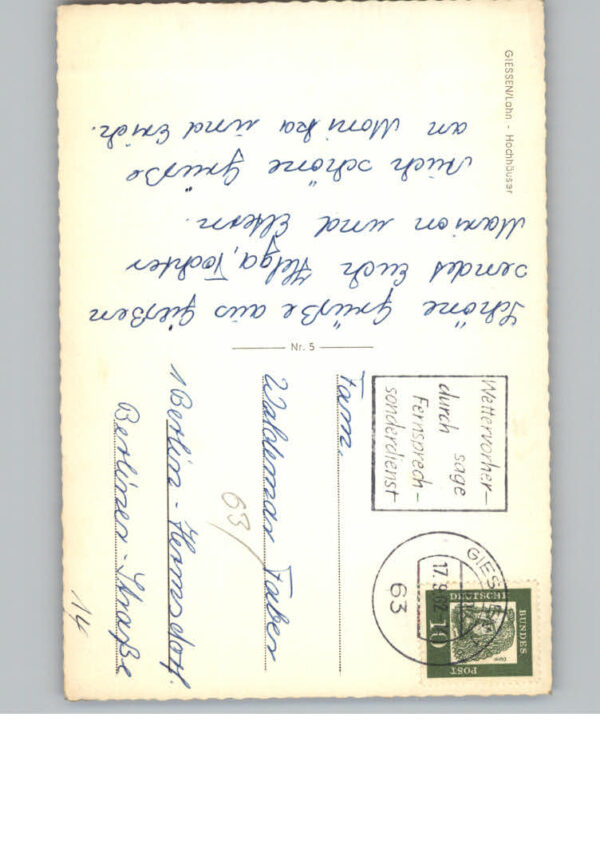 GIESSEN/Lahn - Hochhäuser
Schöne Grüße aus Gießen
sendet Euch Helga, Tochter
Marion und Eltern.
Auch schöne Grüße
an Monika und Erich.
Nr. 5
Wettervorher-
sage
durch
Fernsprech-
sonderdienst
GIESSEN
17.9.62
63
DEUTSCHE
BUNDES
POST
10
Fam.
Waldemar Faber
63
1 Berlin - Hermsdorf.
Berliner - Straße
14